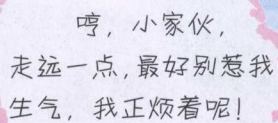 哼，小家伙，
走远一点，最好别惹我
生气，我正烦着呢！